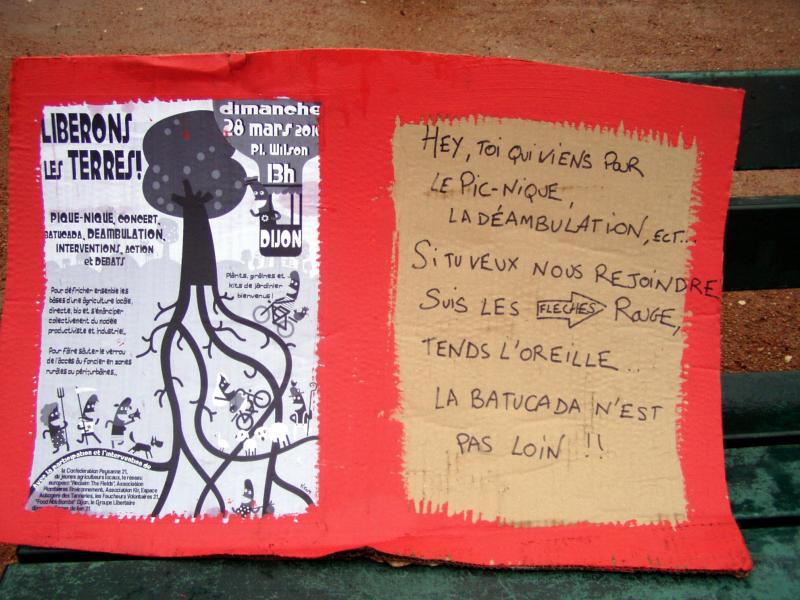 LIBERONS
LES TERRES!
dimanche
28 mars 2010
Pl. Wilson
13h
DIJON
PIQUE-NIQUE, CONCERT,
BATUCADA, DEAMBULATION,
INTERVENTIONS, ACTION
et DEBATS
Plants, graines et
kits de jardinier
bienvenus!
Pour défricher ensemble les
bases d'une agriculture locale,
directe, bio et s'émanciper
collectivement du modèle
productiviste et industriel...
Pour faire sauter le verrou
de l'accès au foncier en zones
rurales ou périurbaines...
Avec la participation et l'intervention de
la Confédération Paysanne 21,
de jeunes agriculteurs locaux, le réseau
européen "Reclaim The Fields", Association
Plombières Environnement, Association Kir, Espace
Autogéré des Tanneries, les Faucheurs Volontaires 21,
"Food Not Bombs" Dijon, le Groupe Libertaire
HEY, TOI QUI VIENS POUR
LE PIC-NIQUE,
LA DÉAMBULATION, ECT...
SI TU VEUX NOUS REJOINDRE
SUIS LES FLECHES ROUGE,
TENDS L'OREILLE...
LA BATUCADA N'EST
PAS LOIN !!